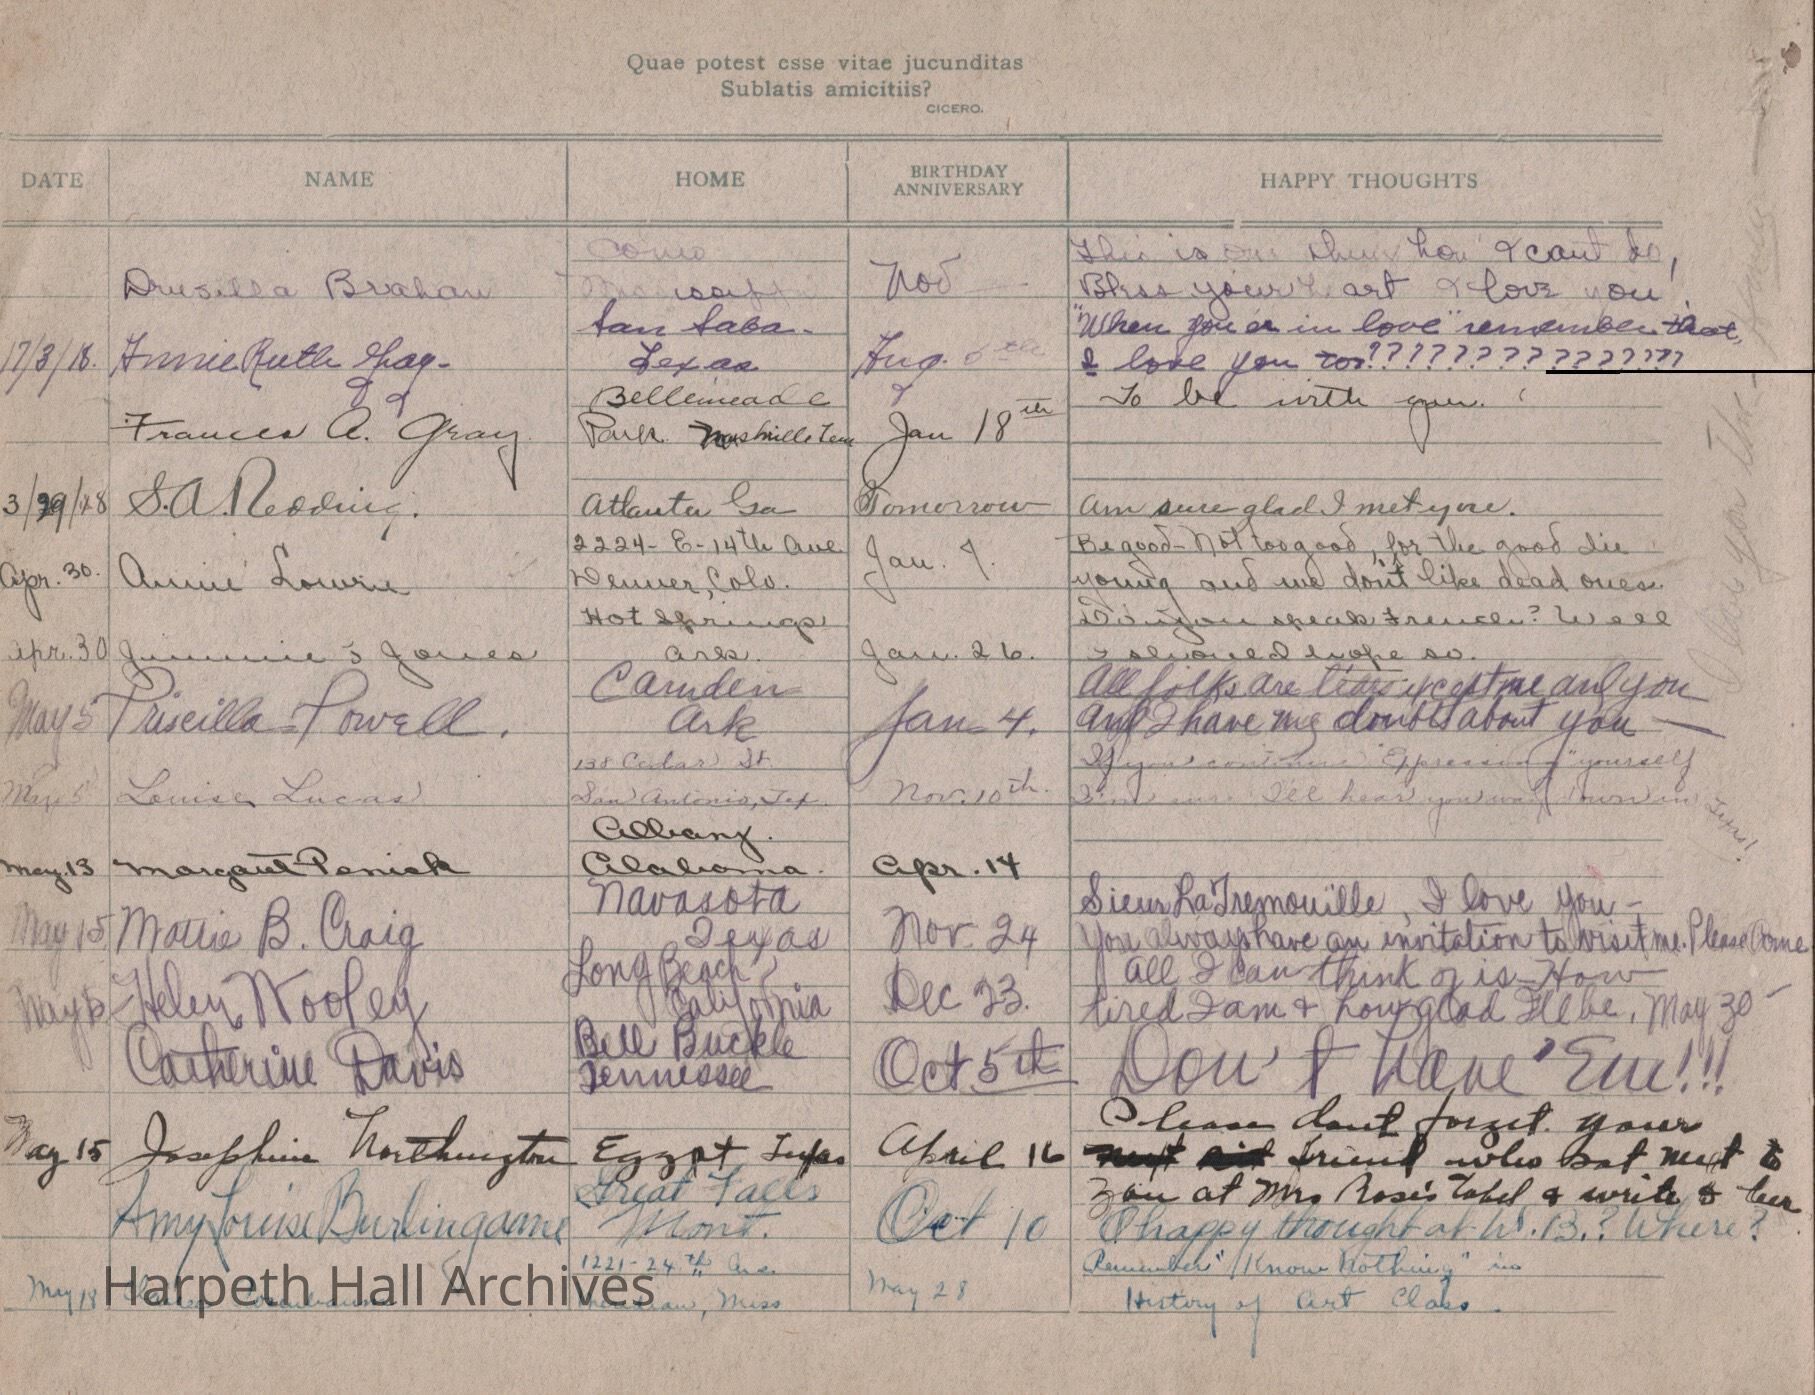 Quae potest esse vitae jucunditas
Sublatis amicitiis?
CICERO.
DATE NAME HOME BIRTHDAY ANNIVERSARY HAPPY THOUGHTS
Como This is one I can't do,
Drusilla Brahan Nov Bless your heart I love you.
San Saba- "When you're in love" remember that,
17/3/18. Annie Ruth Gray- Texas Aug. 6th I love you too????????????????
Bellemeade To be with you.
Frances A. Gray Park Nashville Tenn Jan 18th
3/29/18 S.A. Redding. Atlanta Ga Tomorrow Am sure glad I met you.
2224-E-14th Ave Be good- Not too good, for the good die
Apr. 30. Annie Lowrie Denver, Colo. Jan. 7. young and we don't like dead ones.
Hot Springs Do you speak French? Well
Apr. 30 Jimmie Jones Ark. Jan. 26. I should hope so.
Camden All folks are liars except me and you
May 5 Priscilla Powell. Ark Jan- 4. And I have my doubts about you
138 Cedar St. If you continue "Expressing" yourself
May 5 Louise Lucas San Antonio, Tex. Nov. 10th. I'm sure I'll hear you way down in Texas!
Albany.
May. 13 Margaret Penick Alabama. Apr. 14
Navasota Sieur La Tremouille, I love you-
May 15 Mottie B. Craig Texas Nov. 24 You always have an invitation to visit me. Please Come
Long Beach All I can think of is- How
May 15 Helen Wooley California Dec 23. tired I am & how glad I'll be, May 30-
Bell Buckle
Catherine Davis Tennessee Oct 5th Don't Have 'Em!!!
Please don't forget your
May 15 Josephine Northington Egypt Texas April 16 friend who sat next to
you at Mrs Rose's Tabel & write to her
Great Falls
Amy Louise Burlingame Mont. Oct 10 O happy thought at W.B.? Where?
1221-24th Ave. Remember "I Know Nothing" in
May 18 Meridian, Miss May 28 History of Art Class.
Harpeth Hall Archives